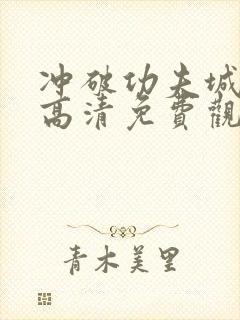 冲破功夫城
高清免費觀
青木美里